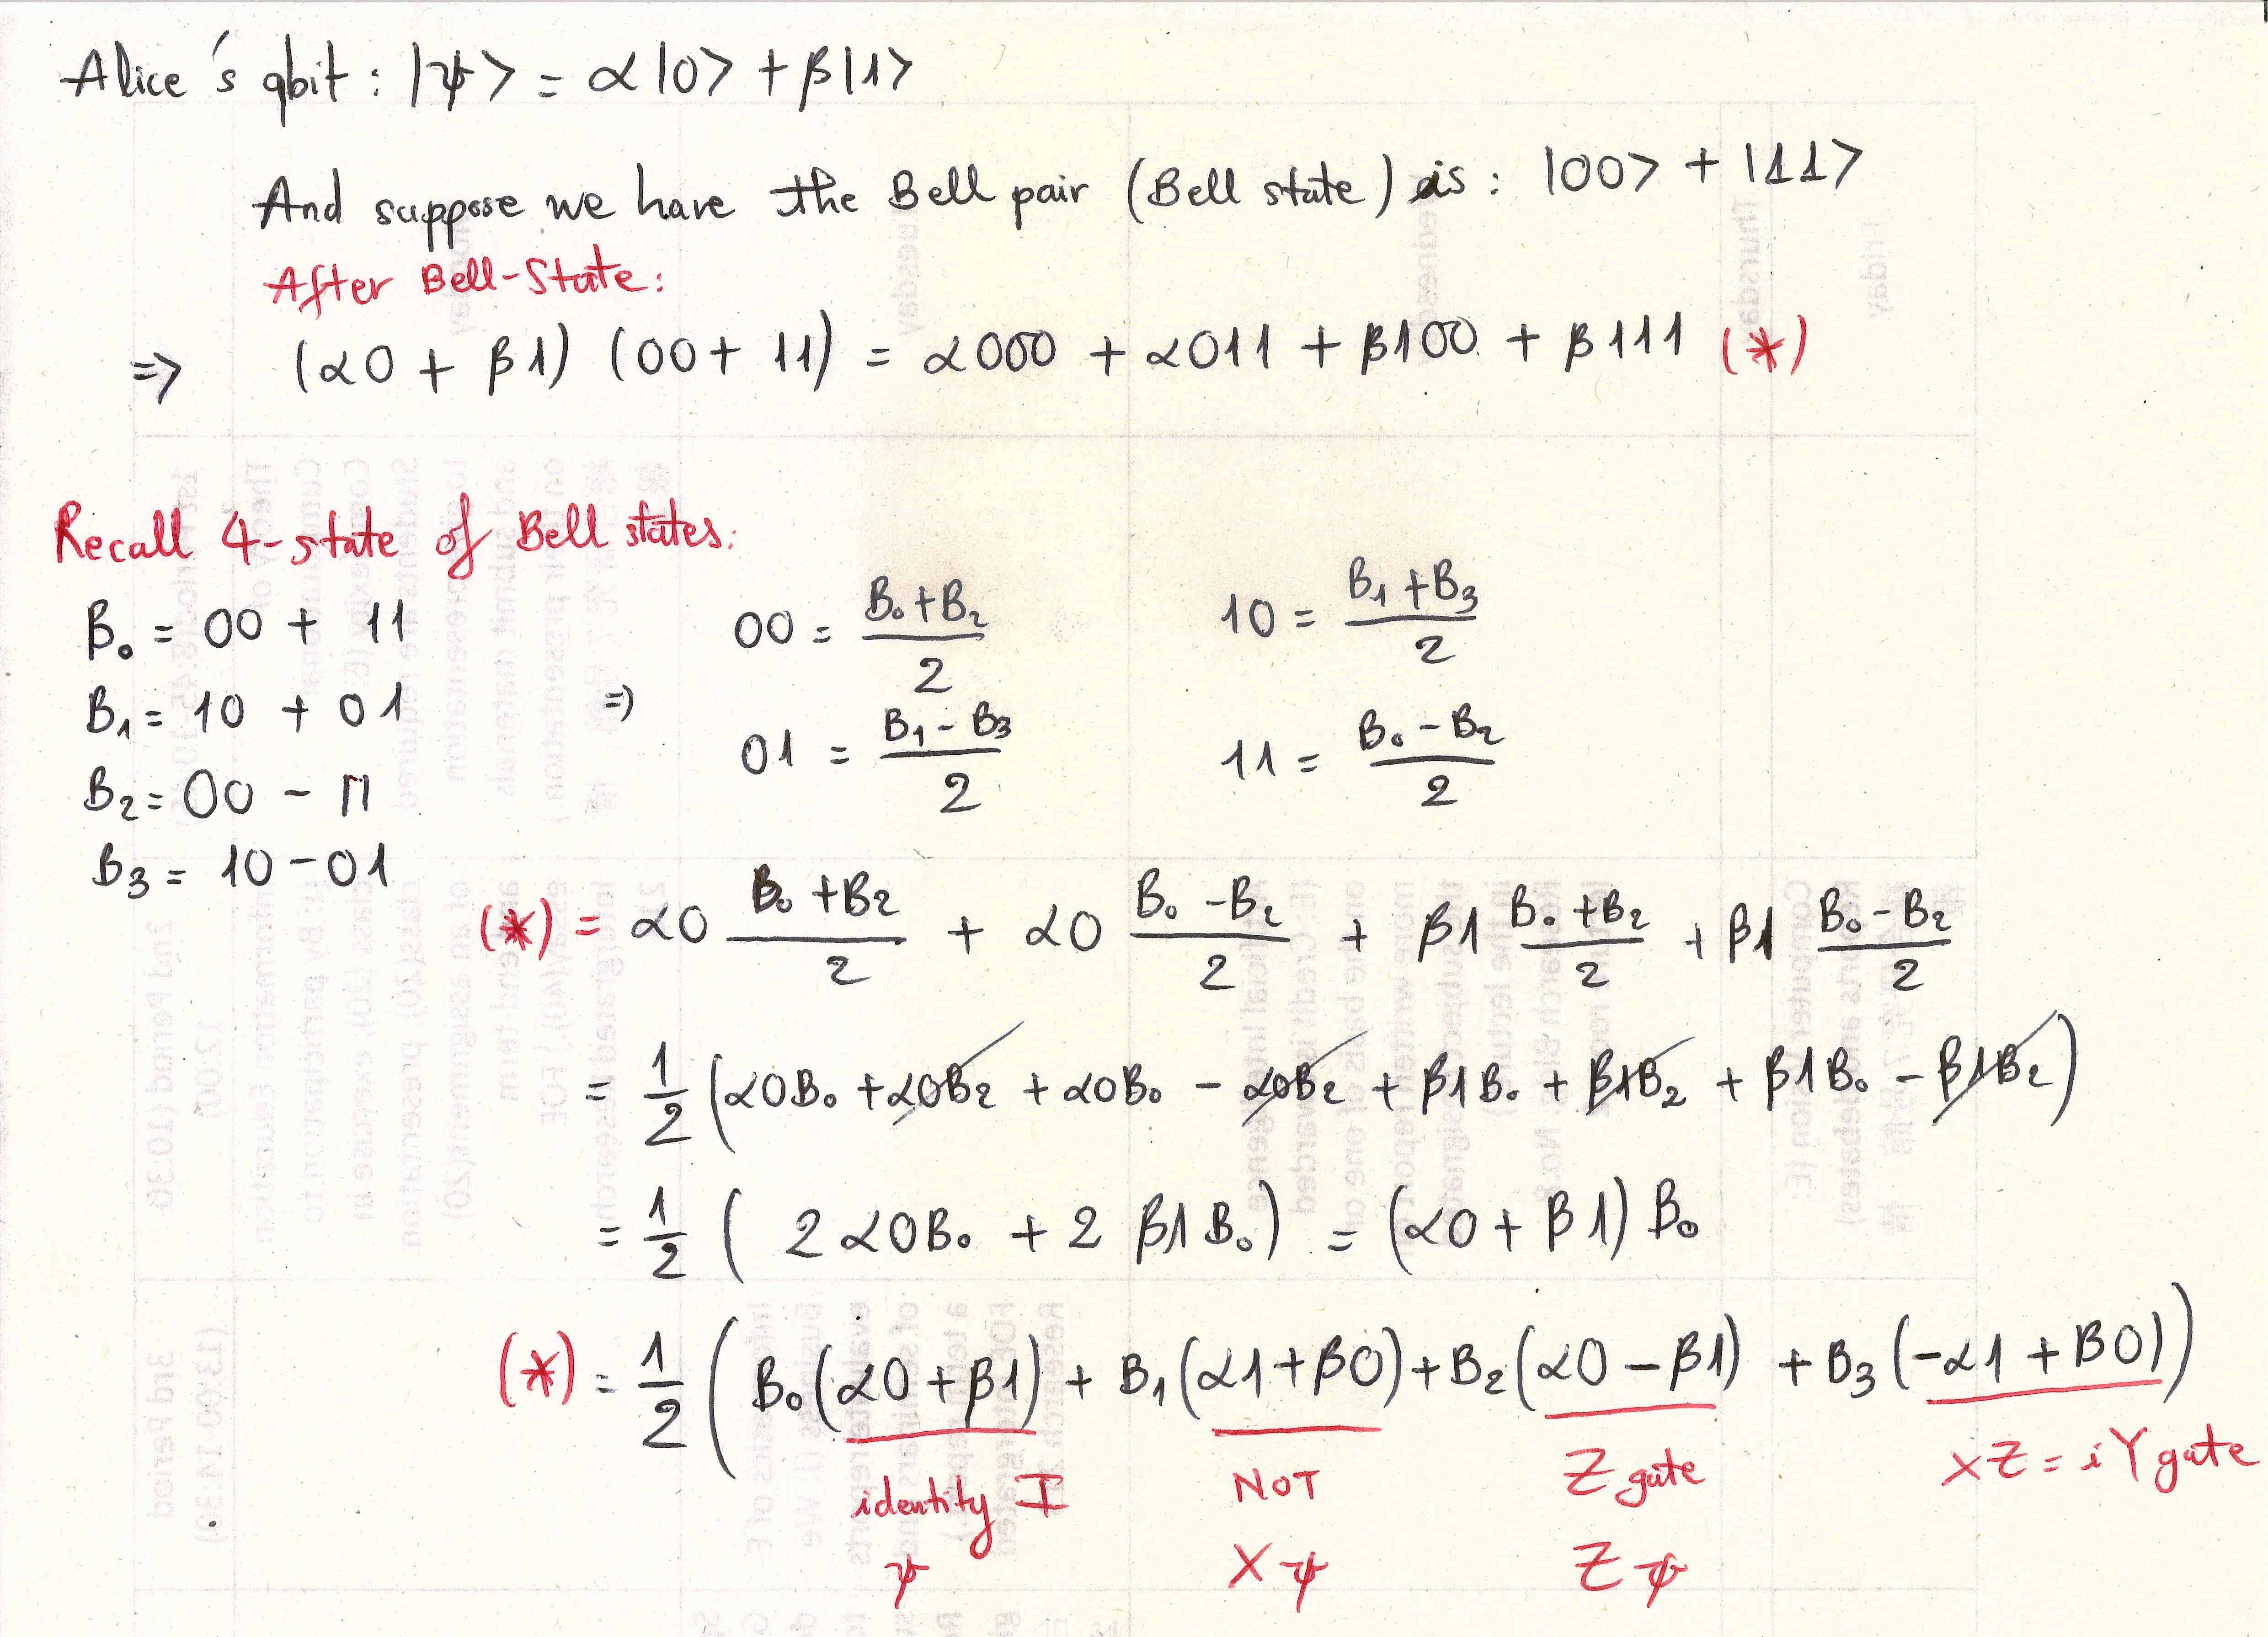 Alice's qbit : |ψ> = α|0> + β|1>
And suppose we have the Bell pair (Bell state) is : |00> + |11>
After Bell-State:
=> (α0 + β1) (00 + 11) = α000 + α011 + β100 + β111 (*)
Recall 4-state of Bell states:
B₀ = 00 + 11
B₁ = 10 + 01
B₂ = 00 - 11
B₃ = 10 - 01
=> 00 = (B₀ + B₂)/2
10 = (B₁ + B₃)/2
01 = (B₁ - B₃)/2
11 = (B₀ - B₂)/2
(*) = α0 (B₀ + B₂)/2 + α0 (B₀ - B₂)/2 + β1 (B₀ + B₂)/2 + β1 (B₀ - B₂)/2
= 1/2 (α0B₀ + α0B₂ + α0B₀ - α0B₂ + β1B₀ + β1B₂ + β1B₀ - β1B₂)
= 1/2 ( 2 α0B₀ + 2 β1B₀) = (α0 + β1) B₀
(*) = 1/2 ( B₀(α0 + β1) + B₁(α1 + β0) + B₂(α0 - β1) + B₃(-α1 + β0))
identity I NOT Z gate XZ = iY gate
ψ Xψ Zψ